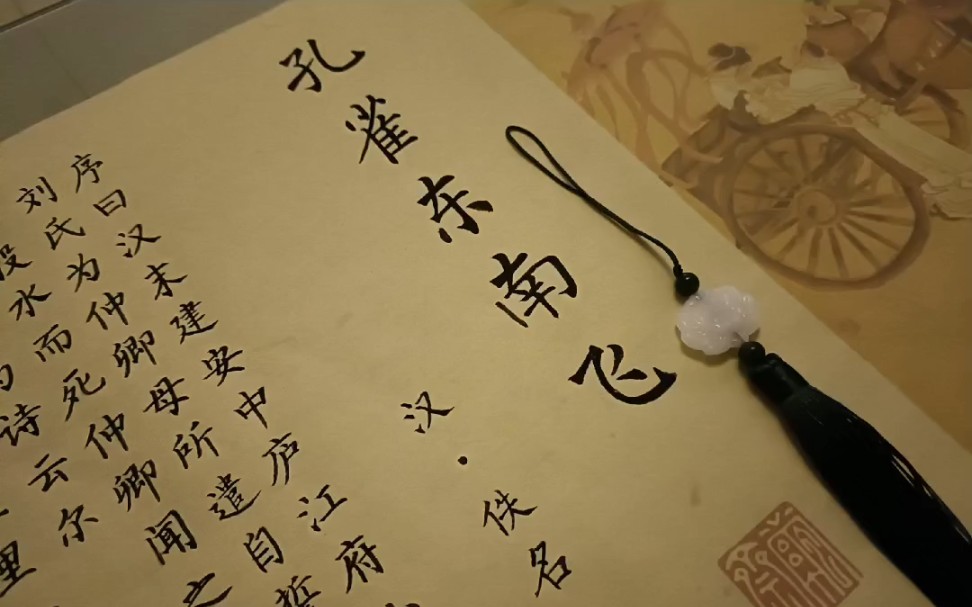 孔雀东南飞
汉·佚名
序曰汉末建安中庐江府
刘氏为仲卿母所遣自誓
没水而死仲卿闻之
为诗云尔
里